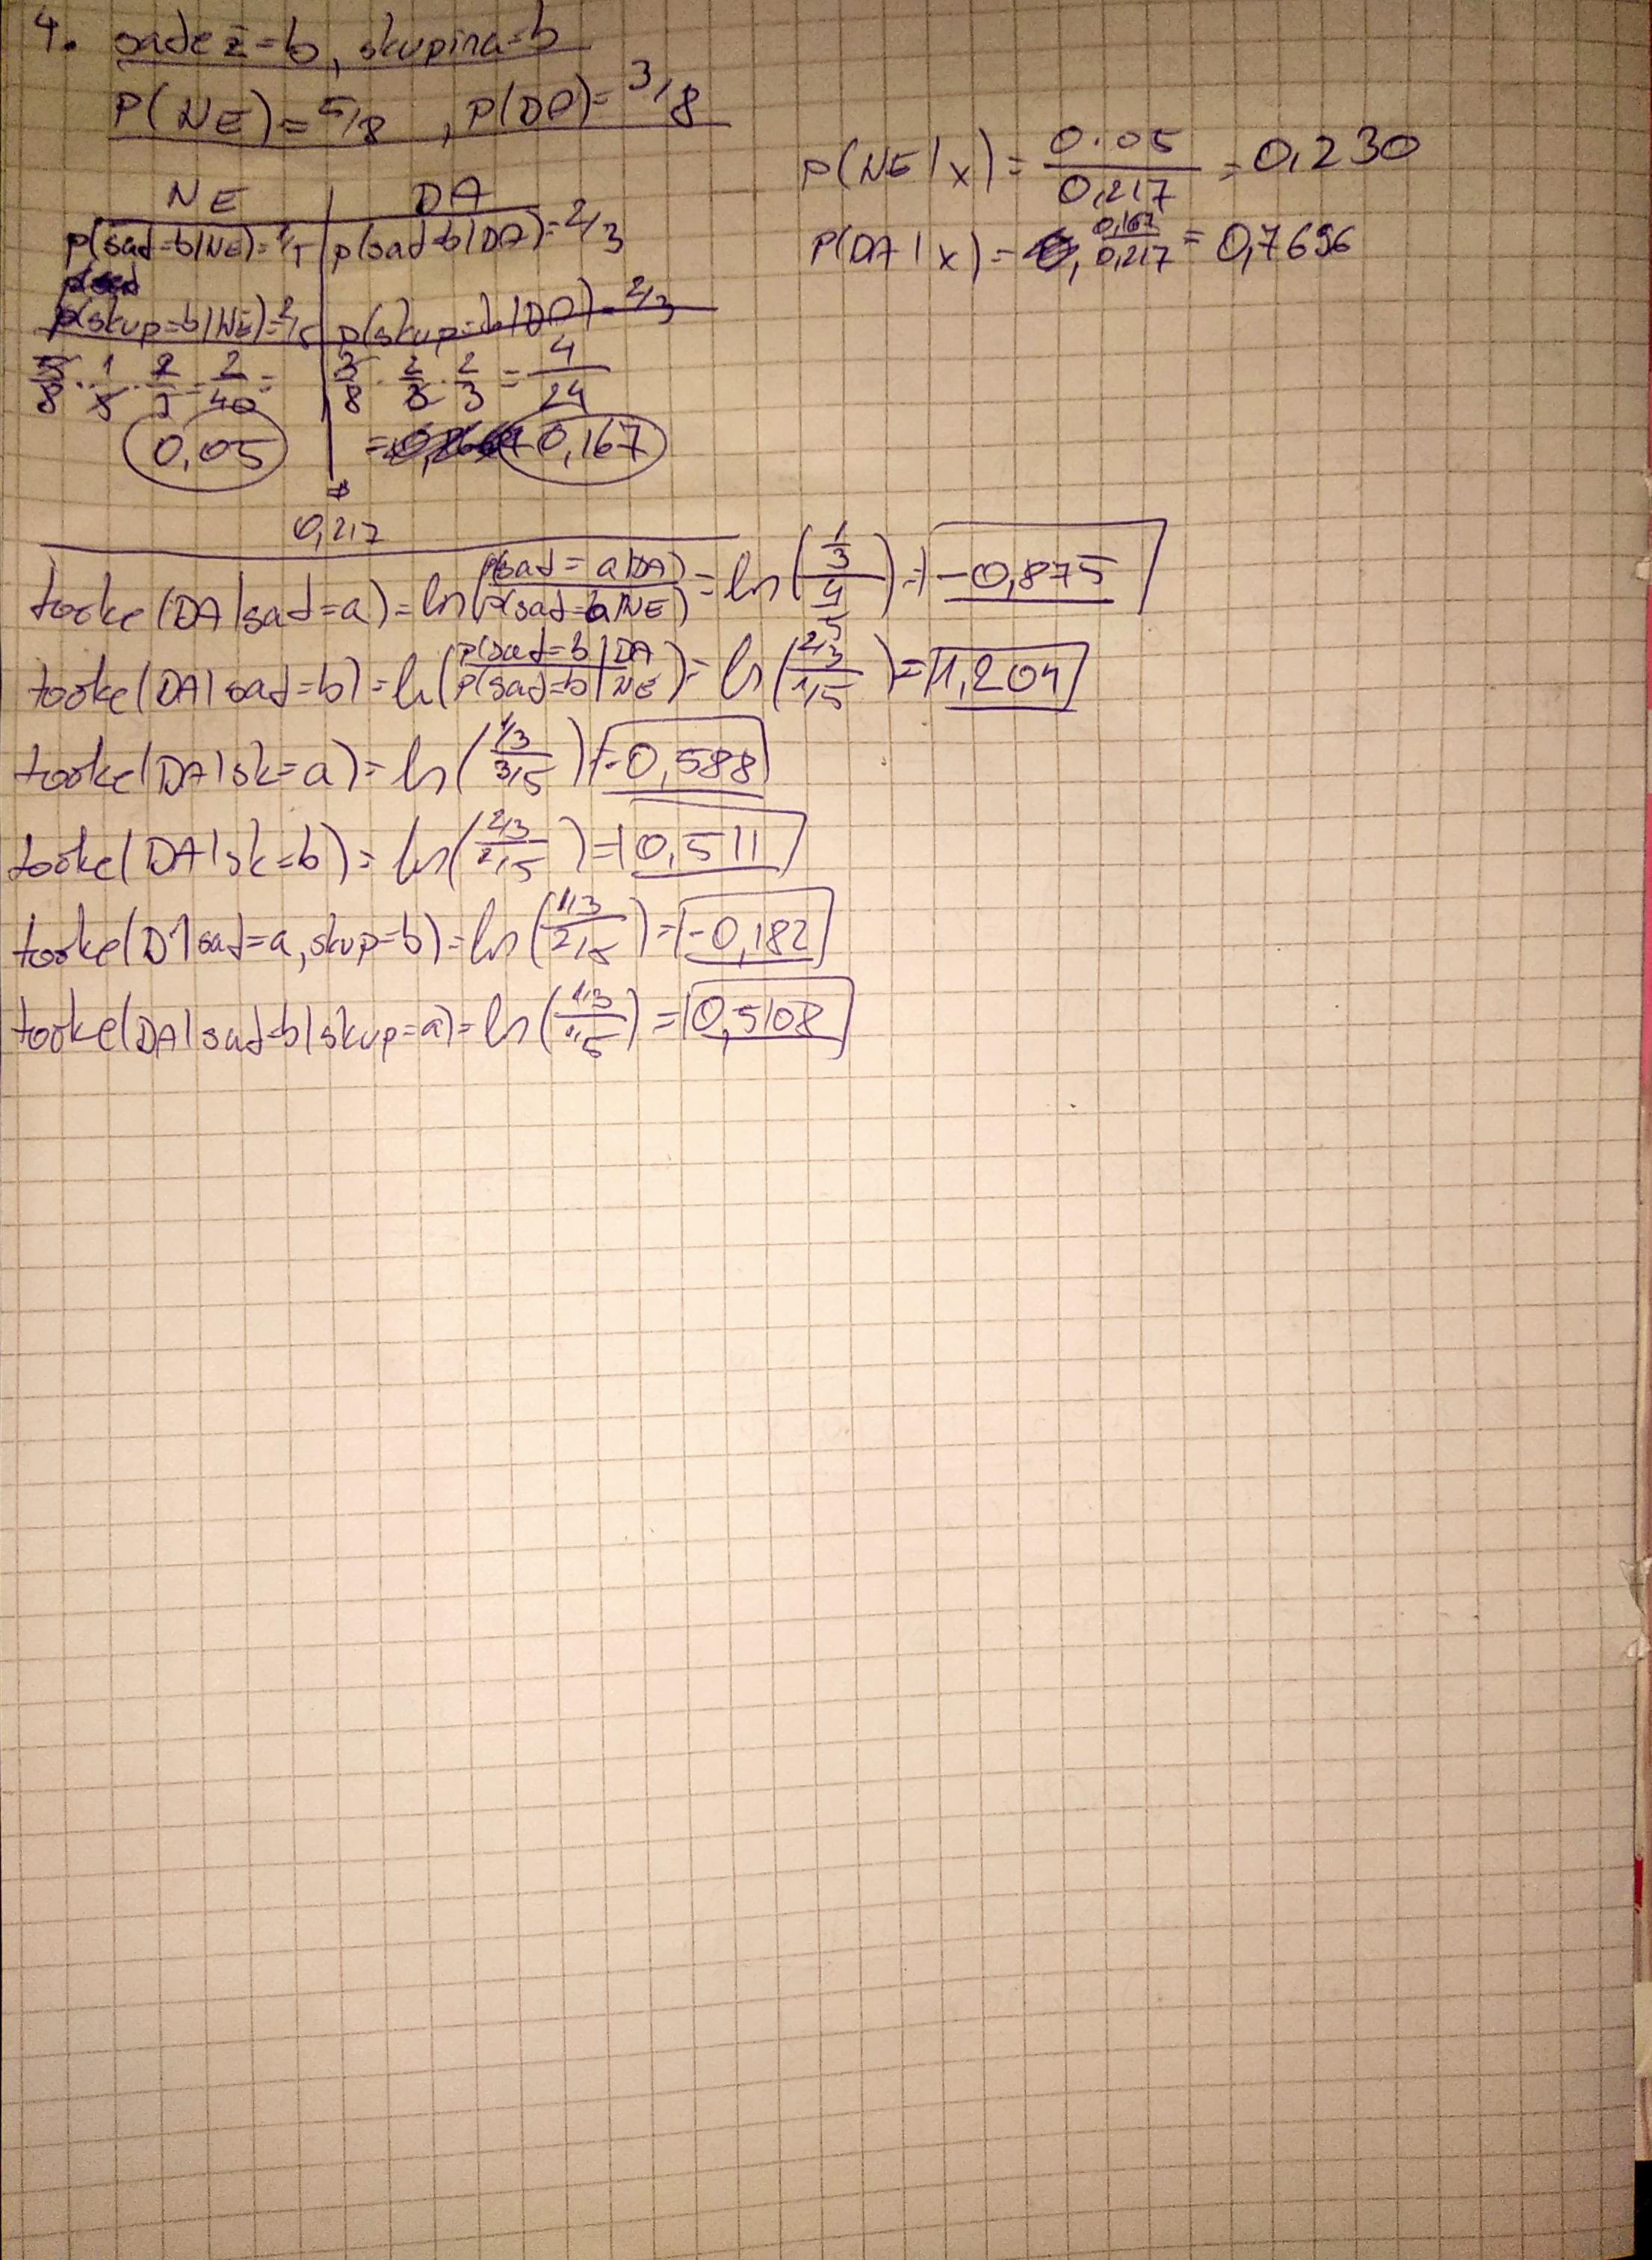 4. sadež=b, skupina=b
P(NE)=5/8, P(DA)=3/8
NE | DA
p(sad=b|NE)=1/5 | p(sad=b|DA)=2/3
p(skup=b|NE)=2/5 | p(skup=b|DA)=2/3
5/8 · 1/5 · 2/5 = 2/40 = | 3/8 · 2/3 · 2/3 = 4/24
0,05 | = 0,167
0,217
P(NE|x) = 0.05/0,217 = 0,230
P(DA|x) = 0,167/0,217 = 0,7696
točke(DA|sad=a) = ln(p(sad=a|DA)/p(sad=a|NE)) = ln((1/3)/(4/5)) = -0,875
točke(DA|sad=b) = ln(p(sad=b|DA)/p(sad=b|NE)) = ln((2/3)/(1/5)) = 1,204
točke(DA|sk=a) = ln((1/3)/(3/5)) = -0,588
točke(DA|sk=b) = ln((2/3)/(2/5)) = 0,511
točke(D1|sad=a, skup=b) = ln((1/3)/(2/5)) = -0,182
točke(DA|sad=b|skup=a) = ln((1/3)/(1/5)) = 0,5108